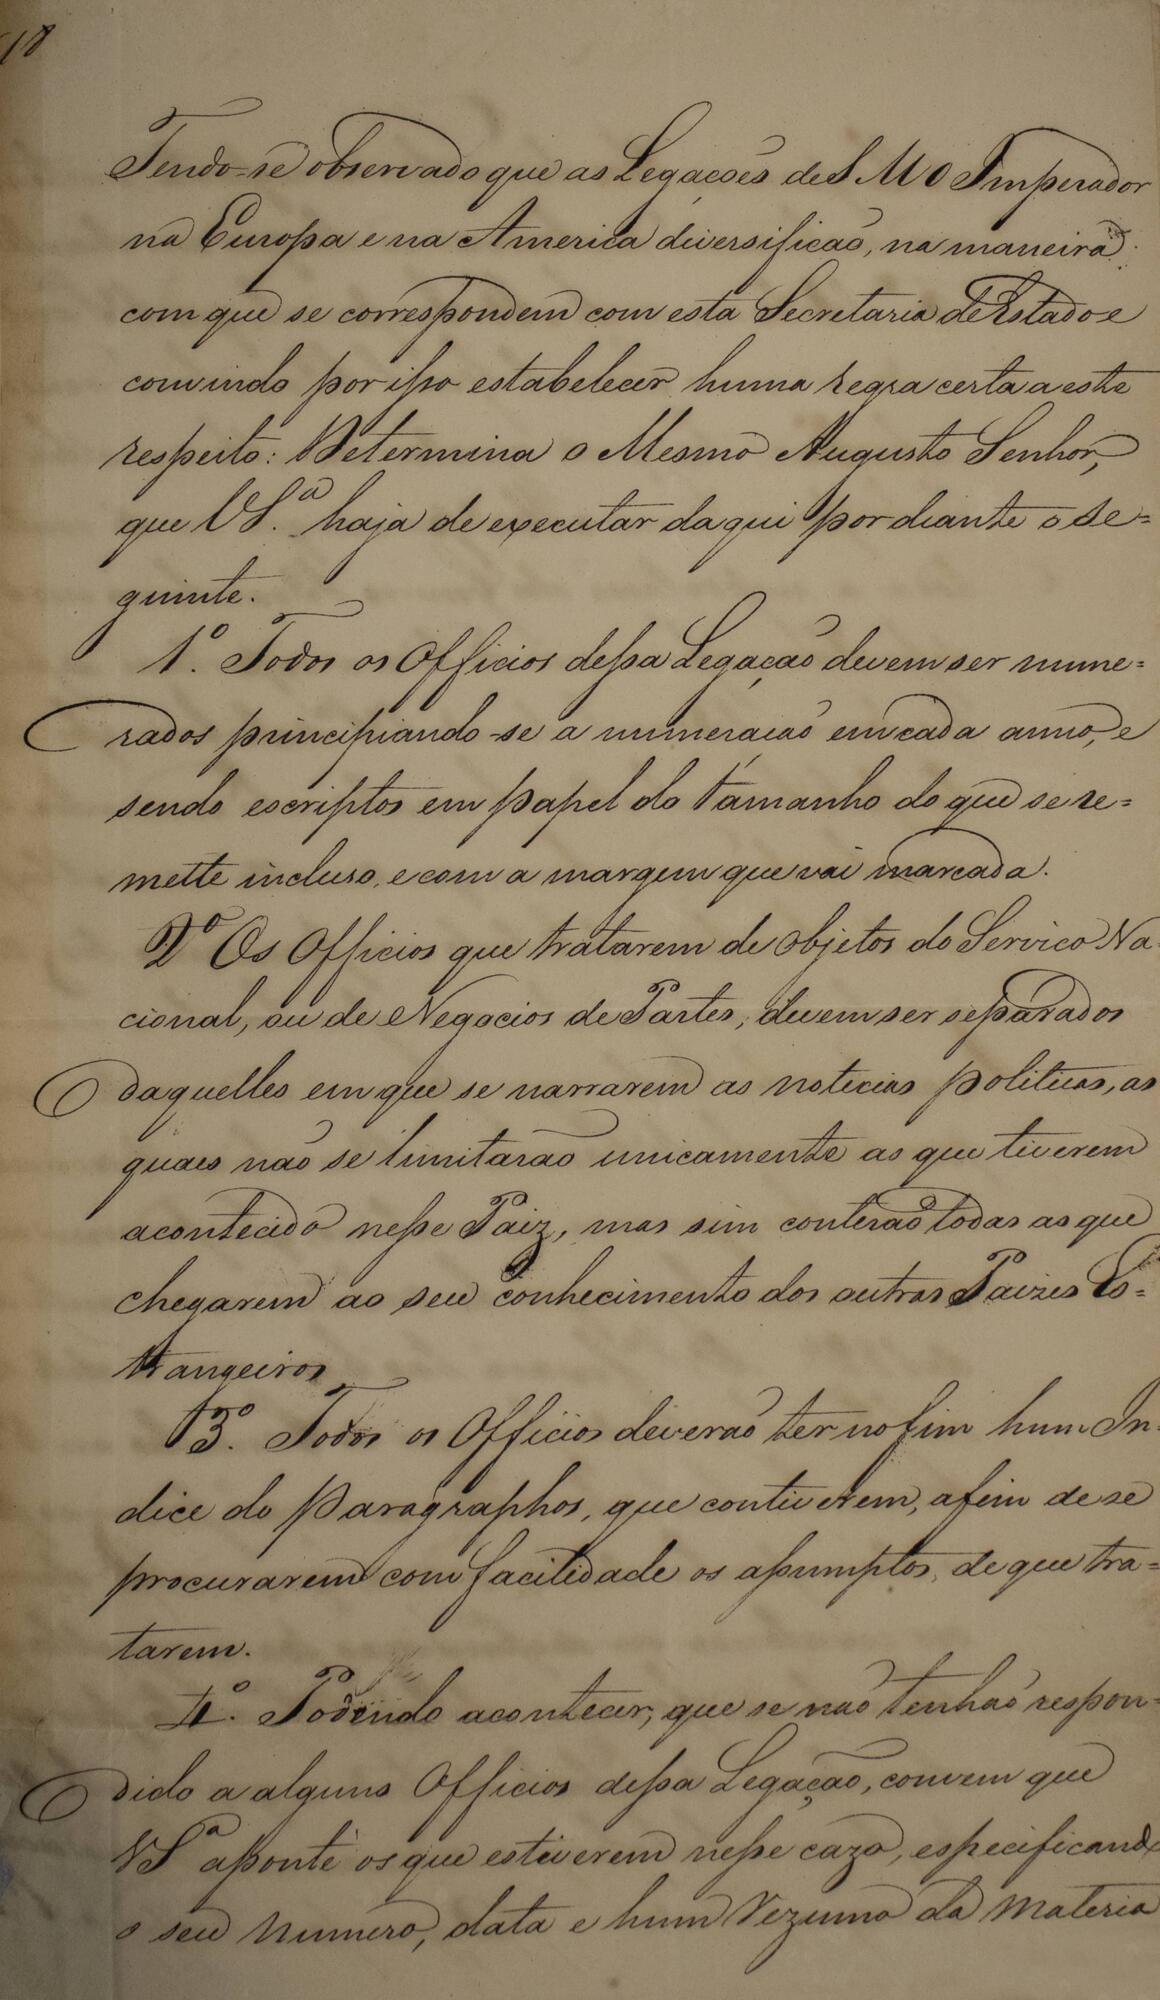 18
Tendo-se observado que as Legações de S M O Imperador
na Europa e na America diversificão, na maneira
com que se correspondem com esta Secretaria de Estado e
convindo por isso estabelecer huma regra certa a este
respeito: Determina o Mesmo Augusto Senhor,
que VS.ª haja de executar daqui por diante o se=
guinte.
1.º Todos os Officios dessa Legação devem ser nume=
rados principiando-se a numeração em cada anno, e
sendo escriptos em papel do tamanho do que se re=
mette incluso, e com a margem que vai marcada.
2º Os Officios que tratarem de objetos do Servico Na=
cional, ou de Negocios de Partes, devem ser separados
daquelles em que se narrarem as noticias politicas, as
quaes não se limitarão unicamente as que tiverem
acontecido nesse Paiz, mas sim conterão todas as que
chegarem ao seu conhecimento dos outros Paizes Es=
trangeiros
3º. Todos os Officios deverão ter no fim hum In=
dice do Paragraphos, que contiverem, afim de se
procurarem com facilidade os assumptos, de que tra=
tarem.
4º. Podendo acontecer, que se não tenhão respon=
dido a alguns Officios dessa Legação, convem que
VSª aponte os que estiverem nesse cazo, especificando
o seu Numero, data e hum Rezumo da Materia